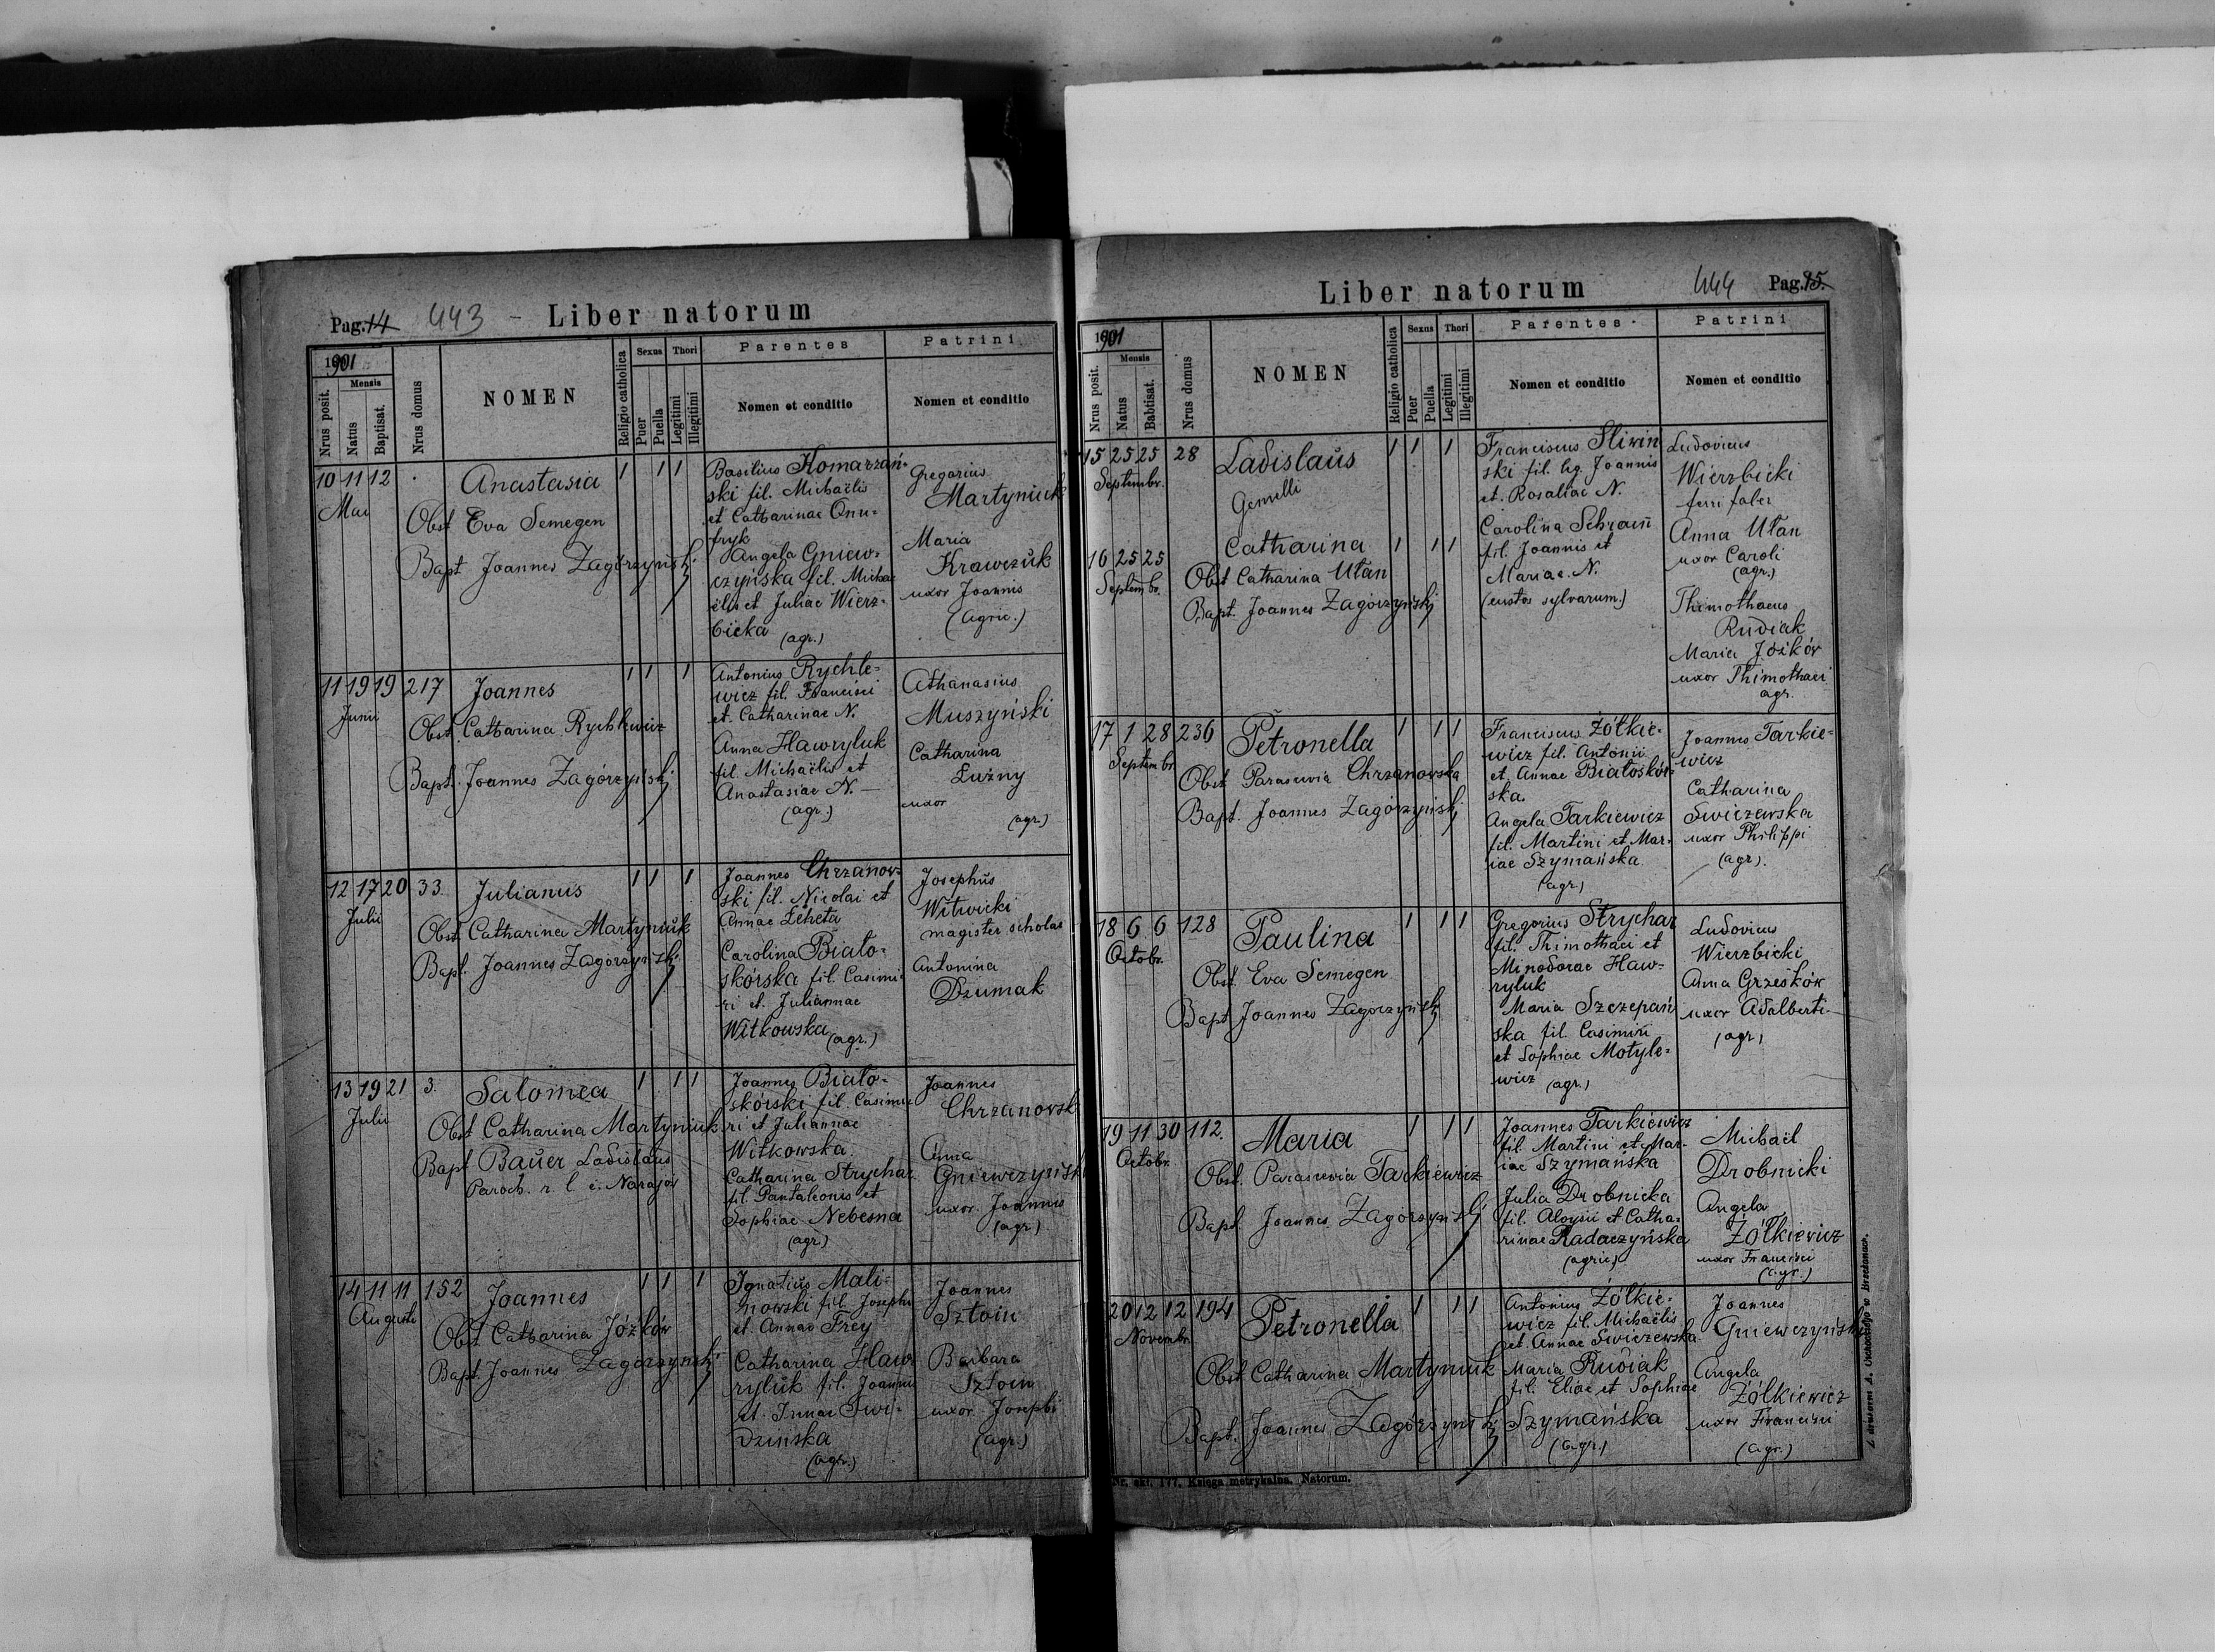 Pag. 14 443 - Liber natorum
1901
Nrus posit.
Mensis
Natus
Baptisat.
Nrus domus
NOMEN
Religio catholica
Sexus
Puer
Puella
Thori
Legitimi
Illegitimi
Parentes
Nomen et conditio
Patrini
Nomen et conditio
10 11 12
Mai
Anastasia 1 1 1
Obst Eva Semegen
Bapt Joannes Zagórzyński
Basilius Komarzań-
ski fil. Michaëlis
et Catharinae Onu-
fryk
Angela Gniew-
czyńska fil. Micha-
ëlis et Juliae Wierz-
bicka (agr.)
Gregorius
Martyniuk
Maria
Krawczuk
uxor Joannis
(Agric.)
11 19 19 217 Joannes 1 1 1
Junii
Obst. Catharina Rychlewicz
Bapt. Joannes Zagórzyński
Antonius Rychle-
wicz fil. Francisci
et. Catharinae N.
Anna Hawryluk
fil. Michaëlis et
Anastasiae N. —
(agr.)
Athanasius
Muszyński
Catharina
Luźny
uxor
(agr.)
12 17 20 33. Julianus 1 1 1
Julii
Obst. Catharina Martyniuk
Bapt. Joannes Zagórzyński
Joannes Chrzanow-
ski fil. Nicolai et
Annae Leheta
Carolina Biało-
skórska fil. Casimi-
ri et. Juliannae
Witkowska (agr.)
Josephus
Witwicki
magister scholae
Antonina
Dzumak
13 19 21 3. Salomea 1 1 1
Julii
Obst Catharina Martyniuk
Bapt Bauer Ladislaus
Paroch. r. l. e. Narajów
Joannes Biało-
skórski fil. Casimi-
ri et Juliannae
Witkowska.
Catharina Strychar
fil. Pantaleonis et
Sophiae Nebesna
(agr.)
Joannes
Chrzanowski
Anna
Gniewczyńska
uxor. Joannis
(agr)
14 11 11 152 Joannes 1 1 1
Augusti
Obst Catharina Jóźków
Bapt. Joannes Zagórzyński
Ignatius Mali-
nowski fil. Josephi
et. Annae Frey
Catharina Haw-
ryluk fil. Joannis
et. Irenae Swi-
dzińska
(agr.)
Joannes
Sztoin
Barbara
Sztoin
uxor. Josephi
(agr.)
Liber natorum 444 Pag. 15.
1901
Nrus posit.
Mensis
Natus
Babtisat.
Nrus domus
NOMEN
Religio catholica
Sexus
Puer
Puella
Thori
Legitimi
Illegitimi
Parentes
Nomen et conditio
Patrini
Nomen et conditio
15 25 25 28 Ladislaus 1 1 1
Septembr.
Gemelli
16 25 25 Catharina 1 1 1
Septembr.
Obst Catharina Ułan
Bapt. Joannes Zagórzyński
Franciscus Sliwin
ski fil. leg. Joannis
et. Rosaliae N.
Carolina Schrain
fil. Joannis et
Mariae. N.
(custos sylvarum.)
Ludovicus
Wierzbicki
ferri faber
Anna Ułan
uxor Caroli
(agr.)
Thimothaeus
Rudiak
Maria Józków
uxor Thimothaei
agr.
17 1 28 236 Petronella 1 1 1
Septembr
Obst Parascevia Chrzanowska
Bapt. Joannes Zagórzyński
Franciscus Żółkie-
wicz fil. Antonii
et. Annae Białoskór-
ska.
Angela Tarkiewicz
fil. Martini et Mar-
iae Szymańska
(agr)
Joannes Tarkie-
wicz
Catharina
Swiczewska
uxor Philippi
(agr).
18 6 6 128 Paulina 1 1 1
Octobr.
Obst. Eva Semegen
Bapt Joannes Zagórzyński
Gregorius Strychar
fil. Thimothaei et
Minodorae Haw-
ryluk
Maria Szczepań-
ska fil. Casimiri
et Sophiae Motyle-
wicz (agr.)
Ludovicus
Wierzbicki
Anna Grześków
uxor Adalberti
(agr)
19 11 30 112. Maria 1 1 1
Octobr.
Obst. Parascevia Tarkiewicz
Bapt. Joannes Zagórzyński
Joannes Tarkiewicz
fil. Martini et Mar-
iae Szymańska
Julia Drobnicka
fil. Aloysii et Catha-
rinae Radaczyńska
(agric)
Michaël
Drobnicki
Angela
Żółkiewicz
uxor Francisci
(agr.)
20 12 12 194 Petronella 1 1 1
Novembr.
Obst. Catharina Martyniuk
Bapt. Joannes Zagórzyński
Antonius Żółkie-
wicz fil. Michaëlis
et. Annae Swiczewska
Maria Rudiak
fil. Eliae et Sophiae
Szymańska
(agr.)
Joannes
Gniewczyński
Angela
Żółkiewicz
uxor Francisci
(agr.)
Nr. skł. 177. Księga metrykalna. Natorum.